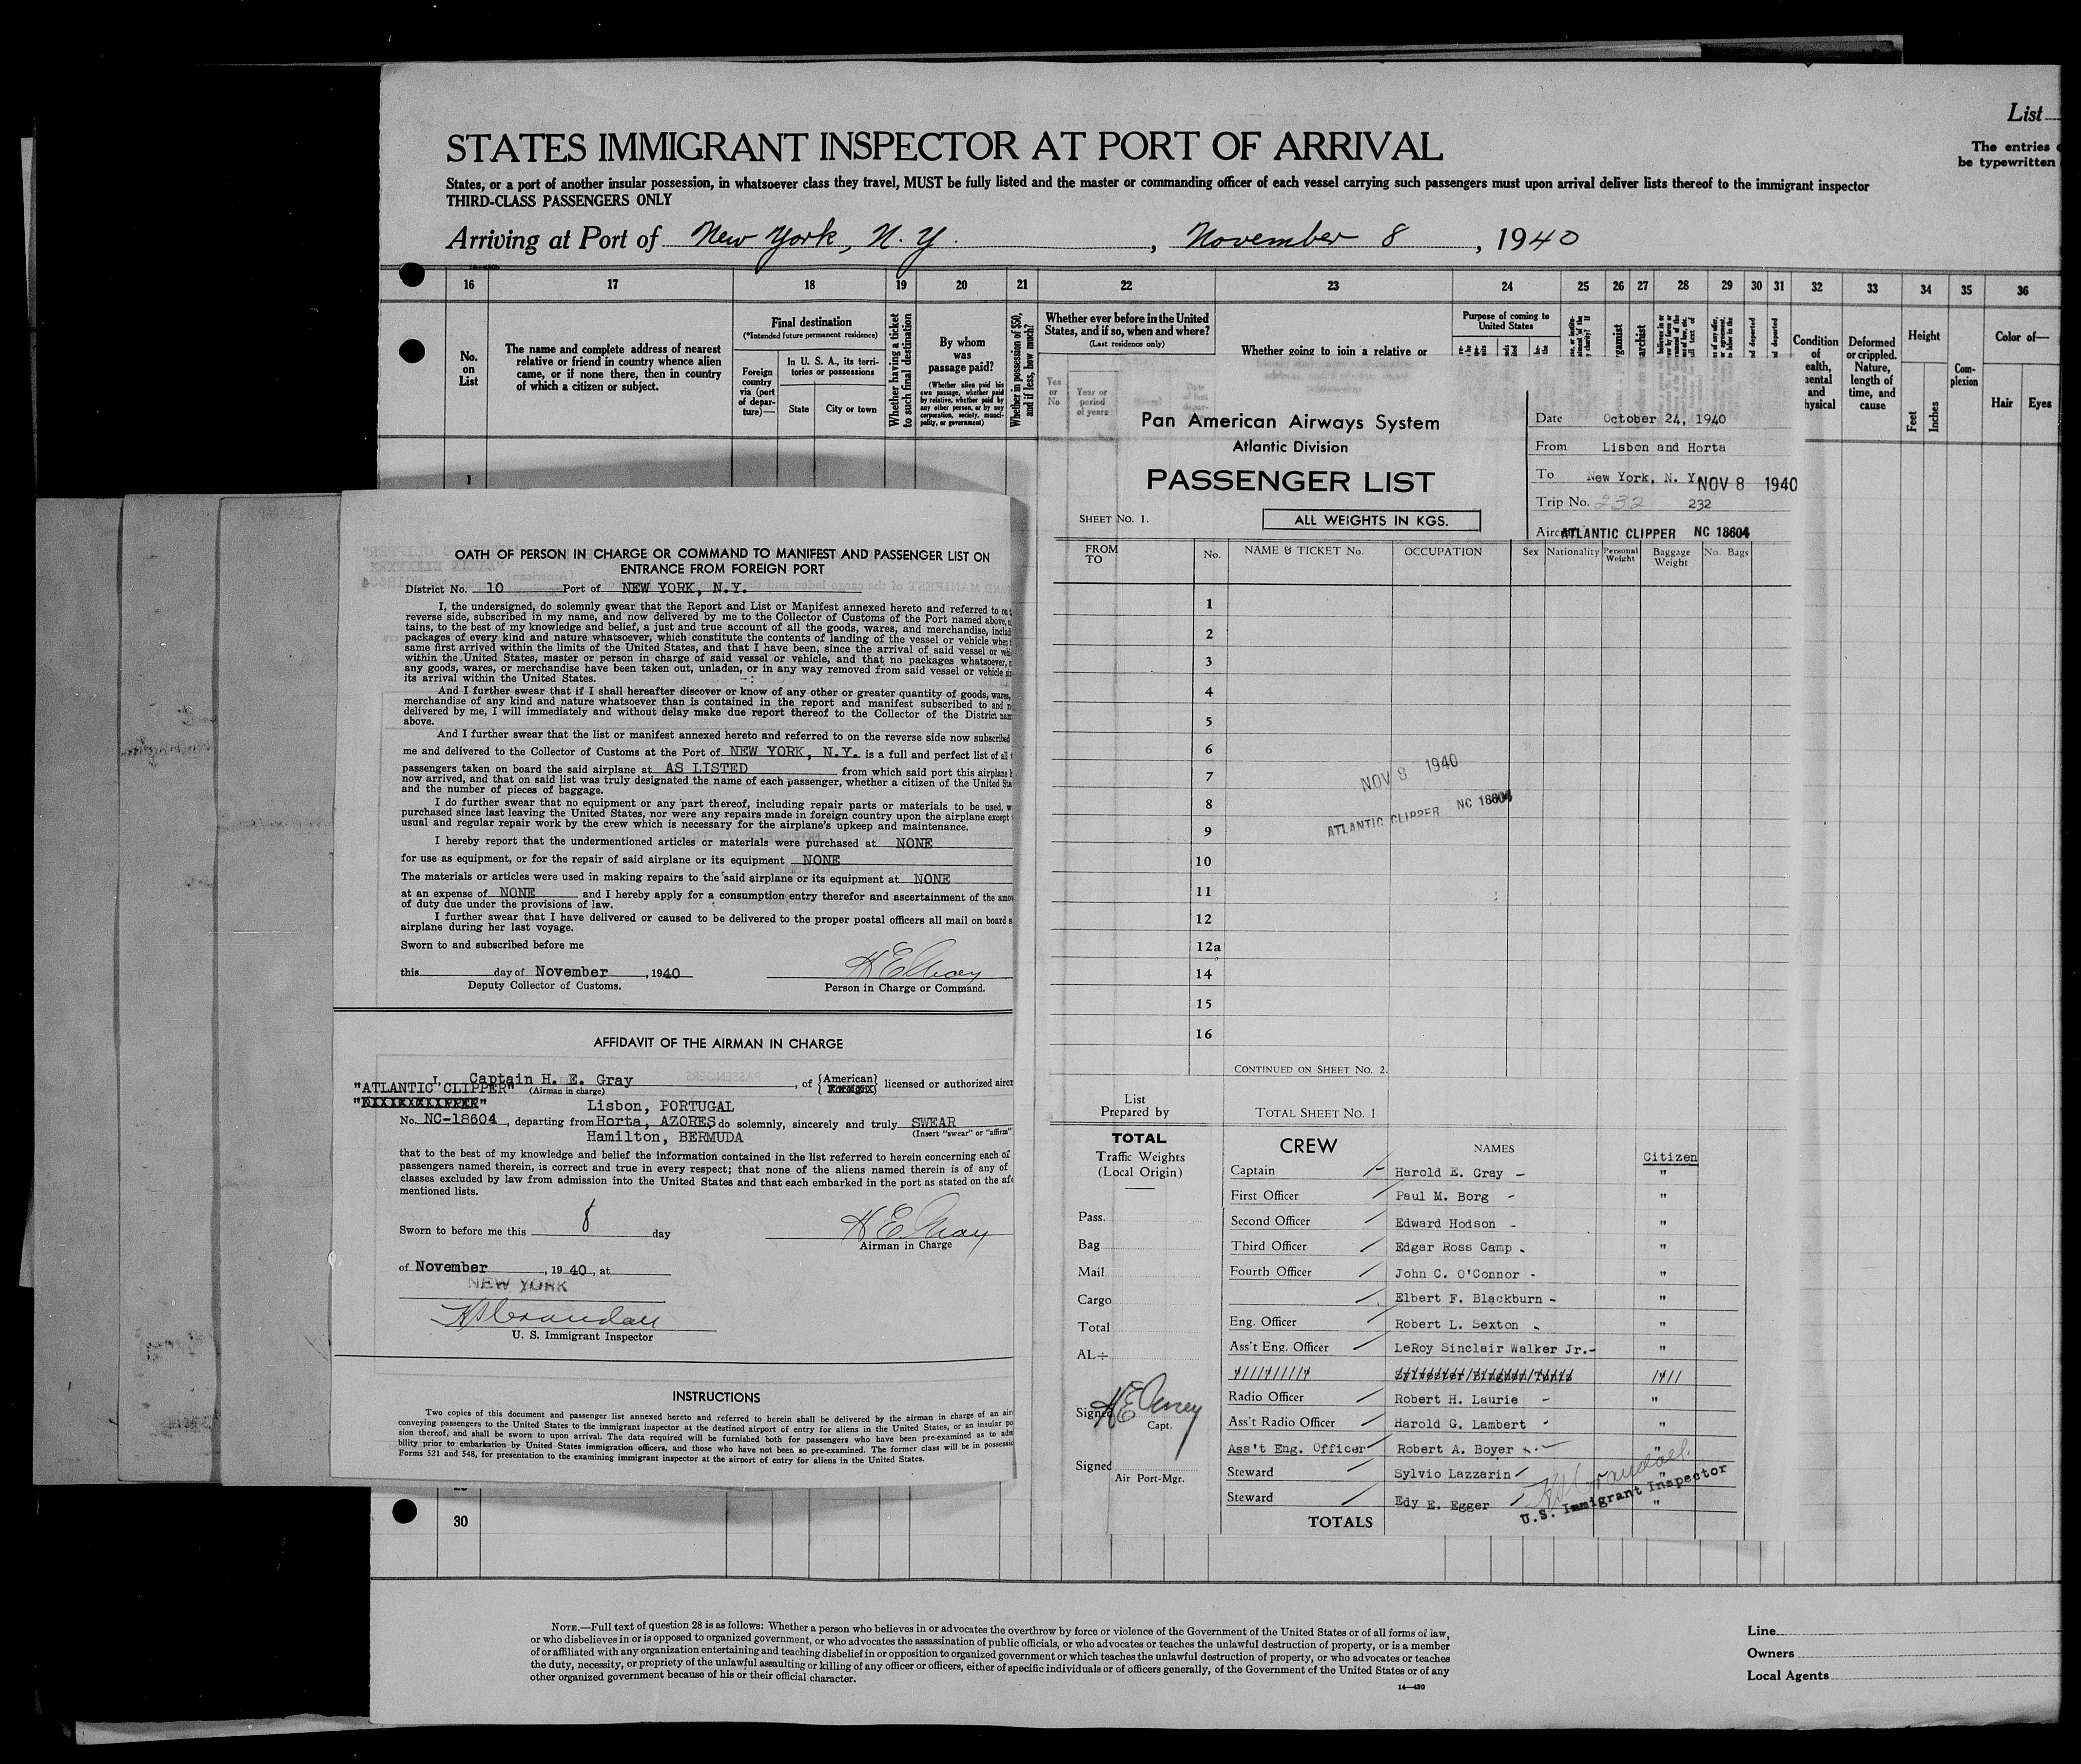 List
STATES IMMIGRANT INSPECTOR AT PORT OF ARRIVAL
The entries
be typewritten
States, or a port of another insular possession, in whatsoever class they travel, MUST be fully listed and the master or commanding officer of each vessel carrying such passengers must upon arrival deliver lists thereof to the immigrant inspector
THIRD-CLASS PASSENGERS ONLY
Arriving at Port of New York, N. Y. , November 8 , 1940
16 17 18 19 20 21 22 23 24 25 26 27 28 29 30 31 32 33 34 35 36
No. on List
The name and complete address of nearest
relative or friend in country whence alien
came, or if none there, then in country
of which a citizen or subject.
Final destination
(*Intended future permanent residence)
Foreign country via (port of departure)—
In U. S. A., its territories or possessions
State City or town
Whether having a ticket to such final destination
By whom was passage paid?
(Whether alien paid his own passage, whether paid by relative, whether paid by any other person, or by any corporation, society, municipality, or government)
Whether in possession of $50, and if less, how much?
Whether ever before in the United States, and if so, when and where?
(Last residence only)
Yes or No
Year or period of years
Whether going to join a relative or
Purpose of coming to United States
Condition of
Deformed or crippled. Nature, length of time, and cause
Height
Feet Inches
Complexion
Color of—
Hair Eyes
1
OATH OF PERSON IN CHARGE OR COMMAND TO MANIFEST AND PASSENGER LIST ON
ENTRANCE FROM FOREIGN PORT
District No. 10 Port of NEW YORK, N.Y.
I, the undersigned, do solemnly swear that the Report and List or Manifest annexed hereto and referred to on
reverse side, subscribed in my name, and now delivered by me to the Collector of Customs of the Port named above,
tains, to the best of my knowledge and belief, a just and true account of all the goods, wares, and merchandise,
packages of every kind and nature whatsoever, which constitute the contents of landing of the vessel or vehicle when
same first arrived within the limits of the United States, and that I have been, since the arrival of said vessel or
within the United States, master or person in charge of said vessel or vehicle, and that no packages whatsoever,
any goods, wares, or merchandise have been taken out, unladen, or in any way removed from said vessel or vehicle
its arrival within the United States.
And I further swear that if I shall hereafter discover or know of any other or greater quantity of goods, wares,
merchandise of any kind and nature whatsoever than is contained in the report and manifest subscribed to and
delivered by me, I will immediately and without delay make due report thereof to the Collector of the District
above.
And I further swear that the list or manifest annexed hereto and referred to on the reverse side now subscribed
me and delivered to the Collector of Customs at the Port of NEW YORK, N.Y. is a full and perfect list of all
passengers taken on board the said airplane at AS LISTED from which said port this airplane
now arrived, and that on said list was truly designated the name of each passenger, whether a citizen of the United
and the number of pieces of baggage.
I do further swear that no equipment or any part thereof, including repair parts or materials to be used,
purchased since last leaving the United States, nor were any repairs made in foreign country upon the airplane except
usual and regular repair work by the crew which is necessary for the airplane's upkeep and maintenance.
I hereby report that the undermentioned articles or materials were purchased at NONE
for use as equipment, or for the repair of said airplane or its equipment NONE
The materials or articles were used in making repairs to the said airplane or its equipment at NONE
at an expense of NONE and I hereby apply for a consumption entry therefor and ascertainment of the
of duty due under the provisions of law.
I further swear that I have delivered or caused to be delivered to the proper postal officers all mail on board
airplane during her last voyage.
Sworn to and subscribed before me
this day of November , 1940 H E Gray
Deputy Collector of Customs. Person in Charge or Command.
AFFIDAVIT OF THE AIRMAN IN CHARGE
I, Captain H. E. Gray , of {American} {Foreign} licensed or authorized
"ATLANTIC CLIPPER" (Airman in charge)
Lisbon, PORTUGAL
No. NC-18604 , departing from Horta, AZORES do solemnly, sincerely and truly SWEAR
Hamilton, BERMUDA (Insert "swear" or "affirm"
that to the best of my knowledge and belief the information contained in the list referred to herein concerning each of
passengers named therein, is correct and true in every respect; that none of the aliens named therein is of any of
classes excluded by law from admission into the United States and that each embarked in the port as stated on the
mentioned lists.
Sworn to before me this 8 day H E Gray
Airman in Charge
of November , 1940, at
NEW YORK
U. S. Immigrant Inspector
INSTRUCTIONS
Two copies of this document and passenger list annexed hereto and referred to herein shall be delivered by the airman in charge of an
conveying passengers to the United States to the immigrant inspector at the destined airport of entry for aliens in the United States, or an insular
sion thereof, and shall be sworn to upon arrival. The data required will be furnished both for passengers who have been pre-examined as to
bility prior to embarkation by United States immigration officers, and those who have not been so pre-examined. The former class will be in
Forms 521 and 548, for presentation to the examining immigrant inspector at the airport of entry for aliens in the United States.
Pan American Airways System
Atlantic Division
PASSENGER LIST
SHEET No. 1. ALL WEIGHTS IN KGS.
Date October 24, 1940
From Lisbon and Horta
To New York, N. Y. NOV 8 1940
Trip No. 232 232
ATLANTIC CLIPPER NC 18604
FROM TO No. NAME & TICKET No. OCCUPATION Sex Nationality Personal Weight Baggage Weight No. Bags
1
2
3
4
5
6
7
8
9
10
11
12
12a
14
15
16
NOV 8 1940
ATLANTIC CLIPPER NC 18604
CONTINUED ON SHEET No. 2.
List
Prepared by TOTAL SHEET No. 1
TOTAL
Traffic Weights
(Local Origin)
Pass.
Bag
Mail
Cargo
Total
AL÷
Signed H E Gray
Capt.
Signed
Air Port-Mgr.
CREW NAMES Citizen
Captain Harold E. Gray - "
First Officer Paul M. Borg - "
Second Officer Edward Hodson - "
Third Officer Edgar Ross Camp - "
Fourth Officer John C. O'Connor - "
Elbert F. Blackburn - "
Eng. Officer Robert L. Sexton - "
Ass't Eng. Officer LeRoy Sinclair Walker Jr.- "
Radio Officer Robert H. Laurie - "
Ass't Radio Officer Harold G. Lambert - "
Ass't Eng. Officer Robert A. Boyer "
Steward Sylvio Lazzarin "
Steward Edy E. Egger "
U.S. Immigrant Inspector
TOTALS
30
NOTE.—Full text of question 28 is as follows: Whether a person who believes in or advocates the overthrow by force or violence of the Government of the United States or of all forms of law,
or who disbelieves in or is opposed to organized government, or who advocates the assassination of public officials, or who advocates or teaches the unlawful destruction of property, or is a member
of or affiliated with any organization entertaining and teaching disbelief in or opposition to organized government or which teaches the unlawful destruction of property, or who advocates or teaches
the duty, necessity, or propriety of the unlawful assaulting or killing of any officer or officers, either of specific individuals or of officers generally, of the Government of the United States or of any
other organized government because of his or their official character.
14—430
Line
Owners
Local Agents